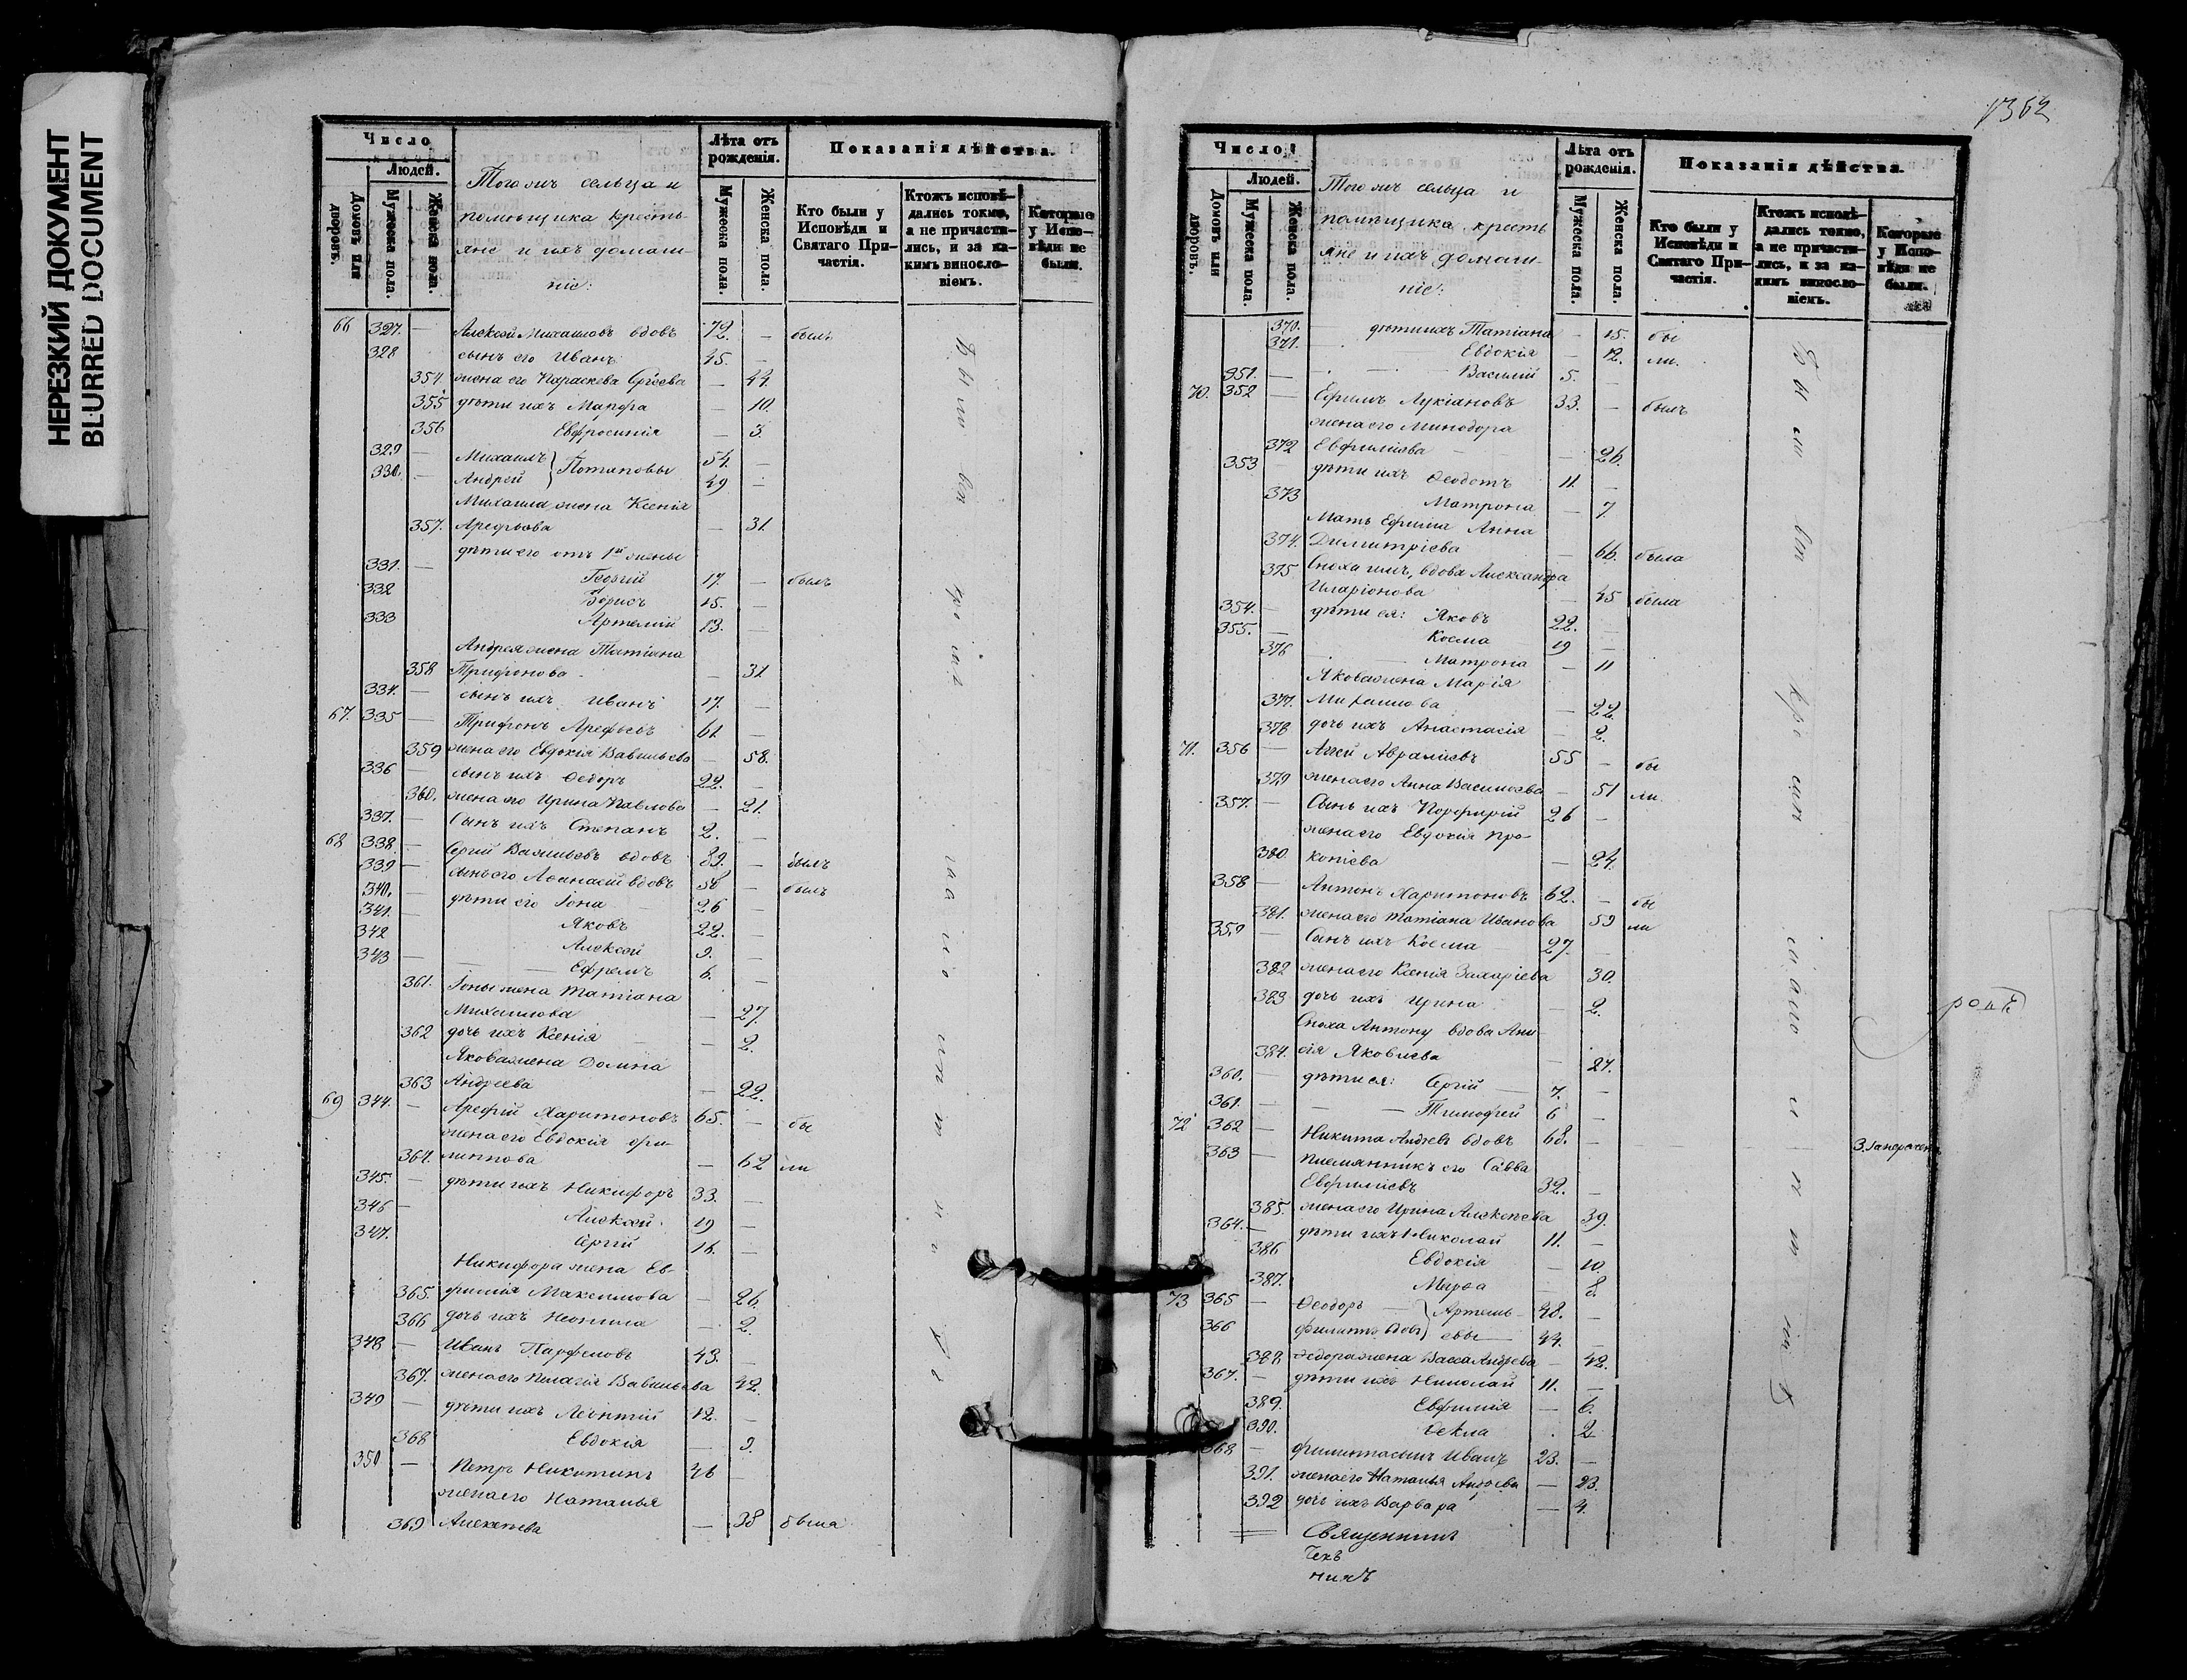 НЕРЕЗКИЙ ДОКУМЕНТ
BLURRED DOCUMENT
Число
Людей.
Домовъ или дворовъ.
Мужеска пола.
Женска пола.
Того жъ сельца и
помѣщика кресть-
яне и ихъ домаш-
ніе:
Лѣта отъ рожденія.
Мужеска пола.
Женска пола.
Показанія дѣйства.
Кто были у Исповѣди и Святаго При-частія.
Ктожъ исповѣ-дались токмо, а не причасти-лись, и за ка-кимъ винословіемъ.
Которые у Испо-вѣди не были.
66 327. — Алексѣй Михаиловъ вдовъ 72. — былъ
328 сынъ его Иванъ 45. —
354 жена его Параскева Сергѣева — 44.
355 дѣти ихъ Марфа — 10.
356 Евфросинія — 3.
329 — Михаилъ } Потаповы 54. —
330. — Андрей 49 —
Михаила жена Ксенія
357. Арефьева — 31.
дѣти его отъ 1й жены
331. — Георгій 17. — былъ
332 Борисъ 15. —
333 Артемій 13. —
Андрея жена Татіана
358 Трифонова — 31
334. — сынъ ихъ Иванъ 17. —
67. 335 — Трифонъ Арефьевъ 61. —
359 жена его Евдокія Вавильева — 58.
336 — сынъ ихъ Ѳедоръ 22. —
360. жена его Ирина Павлова — 21.
337. — Сынъ ихъ Степанъ 2. —
68 338. — Сергій Васильевъ вдовъ 89. — былъ
339 — сынъ его Аѳанасій вдовъ 50 — былъ
340. — дѣти его Іона 26 —
341. — Яковъ 22. —
342 Алексѣй 9. —
343 — Ефремъ 6. —
361. Іоны жена Татіана
Михаилова — 27.
362 дочь ихъ Ксенія — 2.
Якова жена Домна
363 Андреева — 22.
69 344. — Арефій Харитоновъ 65. — бы
жена его Евдокія Фи-
364. липпова — 62 ли
345. — дѣти ихъ Никифоръ 33. —
346 — Алексѣй 19 —
347. Сергій 16. —
Никифора жена Ев-
365. фимія Максимова — 26.
366 дочь ихъ Неонила — 2.
348 — Иванъ Парфеновъ 43. —
367. жена его Пелагія Вавильева 42.
349 — дѣти ихъ Леонтій 12. —
368 Евдокія — 9.
350 — Петръ Никитинъ 46 —
жена его Наталья
369 Алексѣева — 38 была
1362
Число
Людей.
Домовъ или дворовъ.
Мужеска пола.
Женска пола.
Того жъ сельца и
помѣщика кресть
яне и ихъ домаш-
ніе:
Лѣта отъ рожденія.
Мужеска пола.
Женска пола.
Показанія дѣйства.
Кто были у Исповѣди и Святаго При-частія.
Ктожъ исповѣ-дались токмо, а не причасти-лись, и за ка-кимъ винословіемъ.
Которые у Испо-вѣди не были.
370. — дѣти ихъ Татіана — 15. бы
371. — Евдокія — 12. ли.
351. — Василій 5. —
70. 352 — Ефимъ Лукіановъ 33. — былъ
жена его Минодора
372 Евфиміева — 26.
353 — дѣти ихъ Ѳеодотъ 11. —
373 Матрона — 7.
Мать Ефима Анна
374. Димитріева — 66. была
375 Сноха имъ, вдова Александра
Иларіонова — 45 была
354. — дѣти ея: Яковъ 22. —
355. — Косма 19 —
376 — Матрона — 11
Якова жена Марія
377. Михаилова — 22.
378 дочь ихъ Анастасія — 2.
71. 356 — Аггей Авраміевъ 55 — бы
379 жена его Анна Васильева — 51 ли
357. — Сынъ ихъ Порфирій 26 —
жена его Евдокія Про-
380. копіева — 24.
358 — Антонъ Харитоновъ 62. — бы
381. жена его Татіана Иванова 59 ли
359 — Сынъ ихъ Косма 27. —
382 жена его Ксенія Захаріева 30.
383 дочь ихъ Ирина — 2.
Сноха Антону вдова Ани
384. сія Яковлева — 27.
360. — дѣти ея: Сергій 7. —
361. — Тимофей 6 —
72 362 — Никита Андреевъ вдовъ 68. —
363 — племянникъ его Савва
Евфиміевъ 32. —
385. жена его Ирина Алексѣева 39.
364. — дѣти ихъ Николай 11. —
386 Евдокія — 10.
387. Марѳа — 8.
73 365 — Ѳеодоръ } Артемь- 48. —
366 Филиппъ вдовъ евы 44. —
388 Ѳедора жена Васса Андреева — 42.
367. — дѣти ихъ Николай 11. —
389. Евфимія — 6.
390. Ѳекла 2
368 — Филиппа сынъ Иванъ 23. —
391. жена его Наталья — 23.
392 дочь ихъ Варвара — 4.
Священникъ